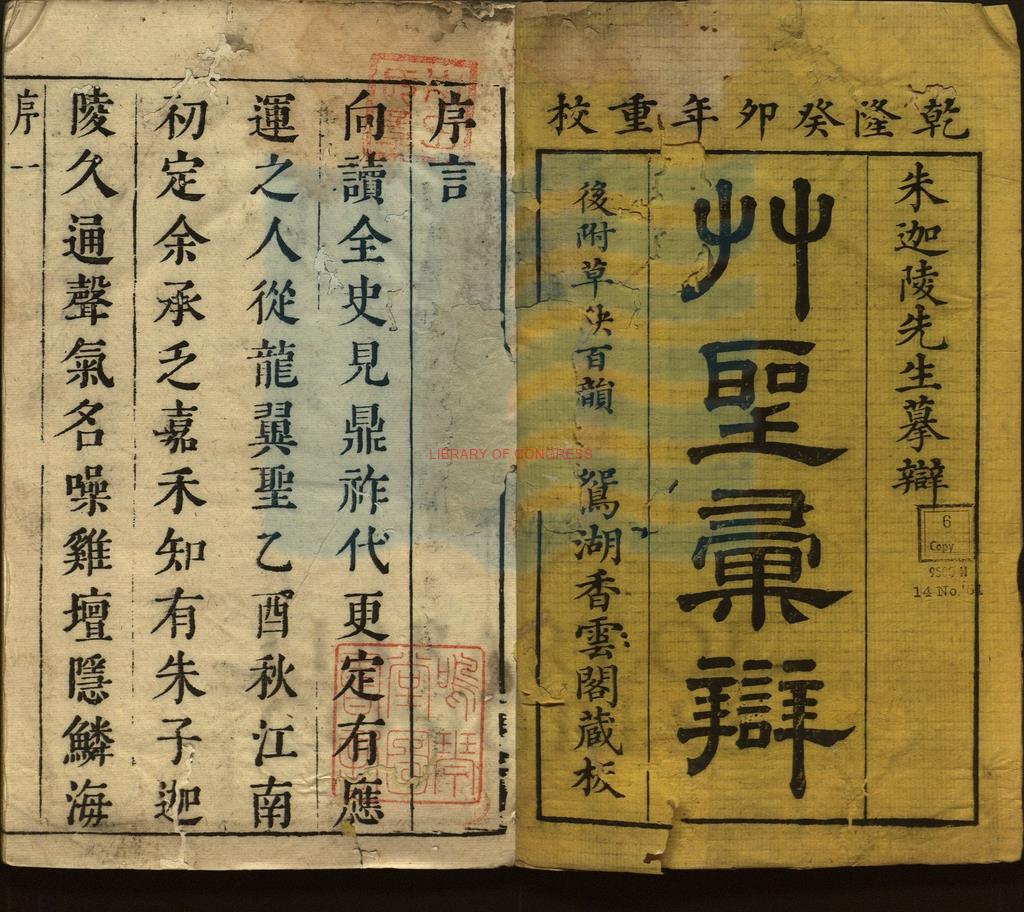 乾隆癸卯年重校
朱迦陵先生摹辯
艸聖彙辯
後附草決百韻 鴛湖香雲閣蔵板
6
Copy
14 No.
LIBRARY OF CONGRESS
序言
向讀全史見鼎祚代更定有應
運之人從龍翼聖乙酉秋江南
初定余承乏嘉禾知有朱子迦
陵久通聲氣名噪雞壇隱鱗海
序 一